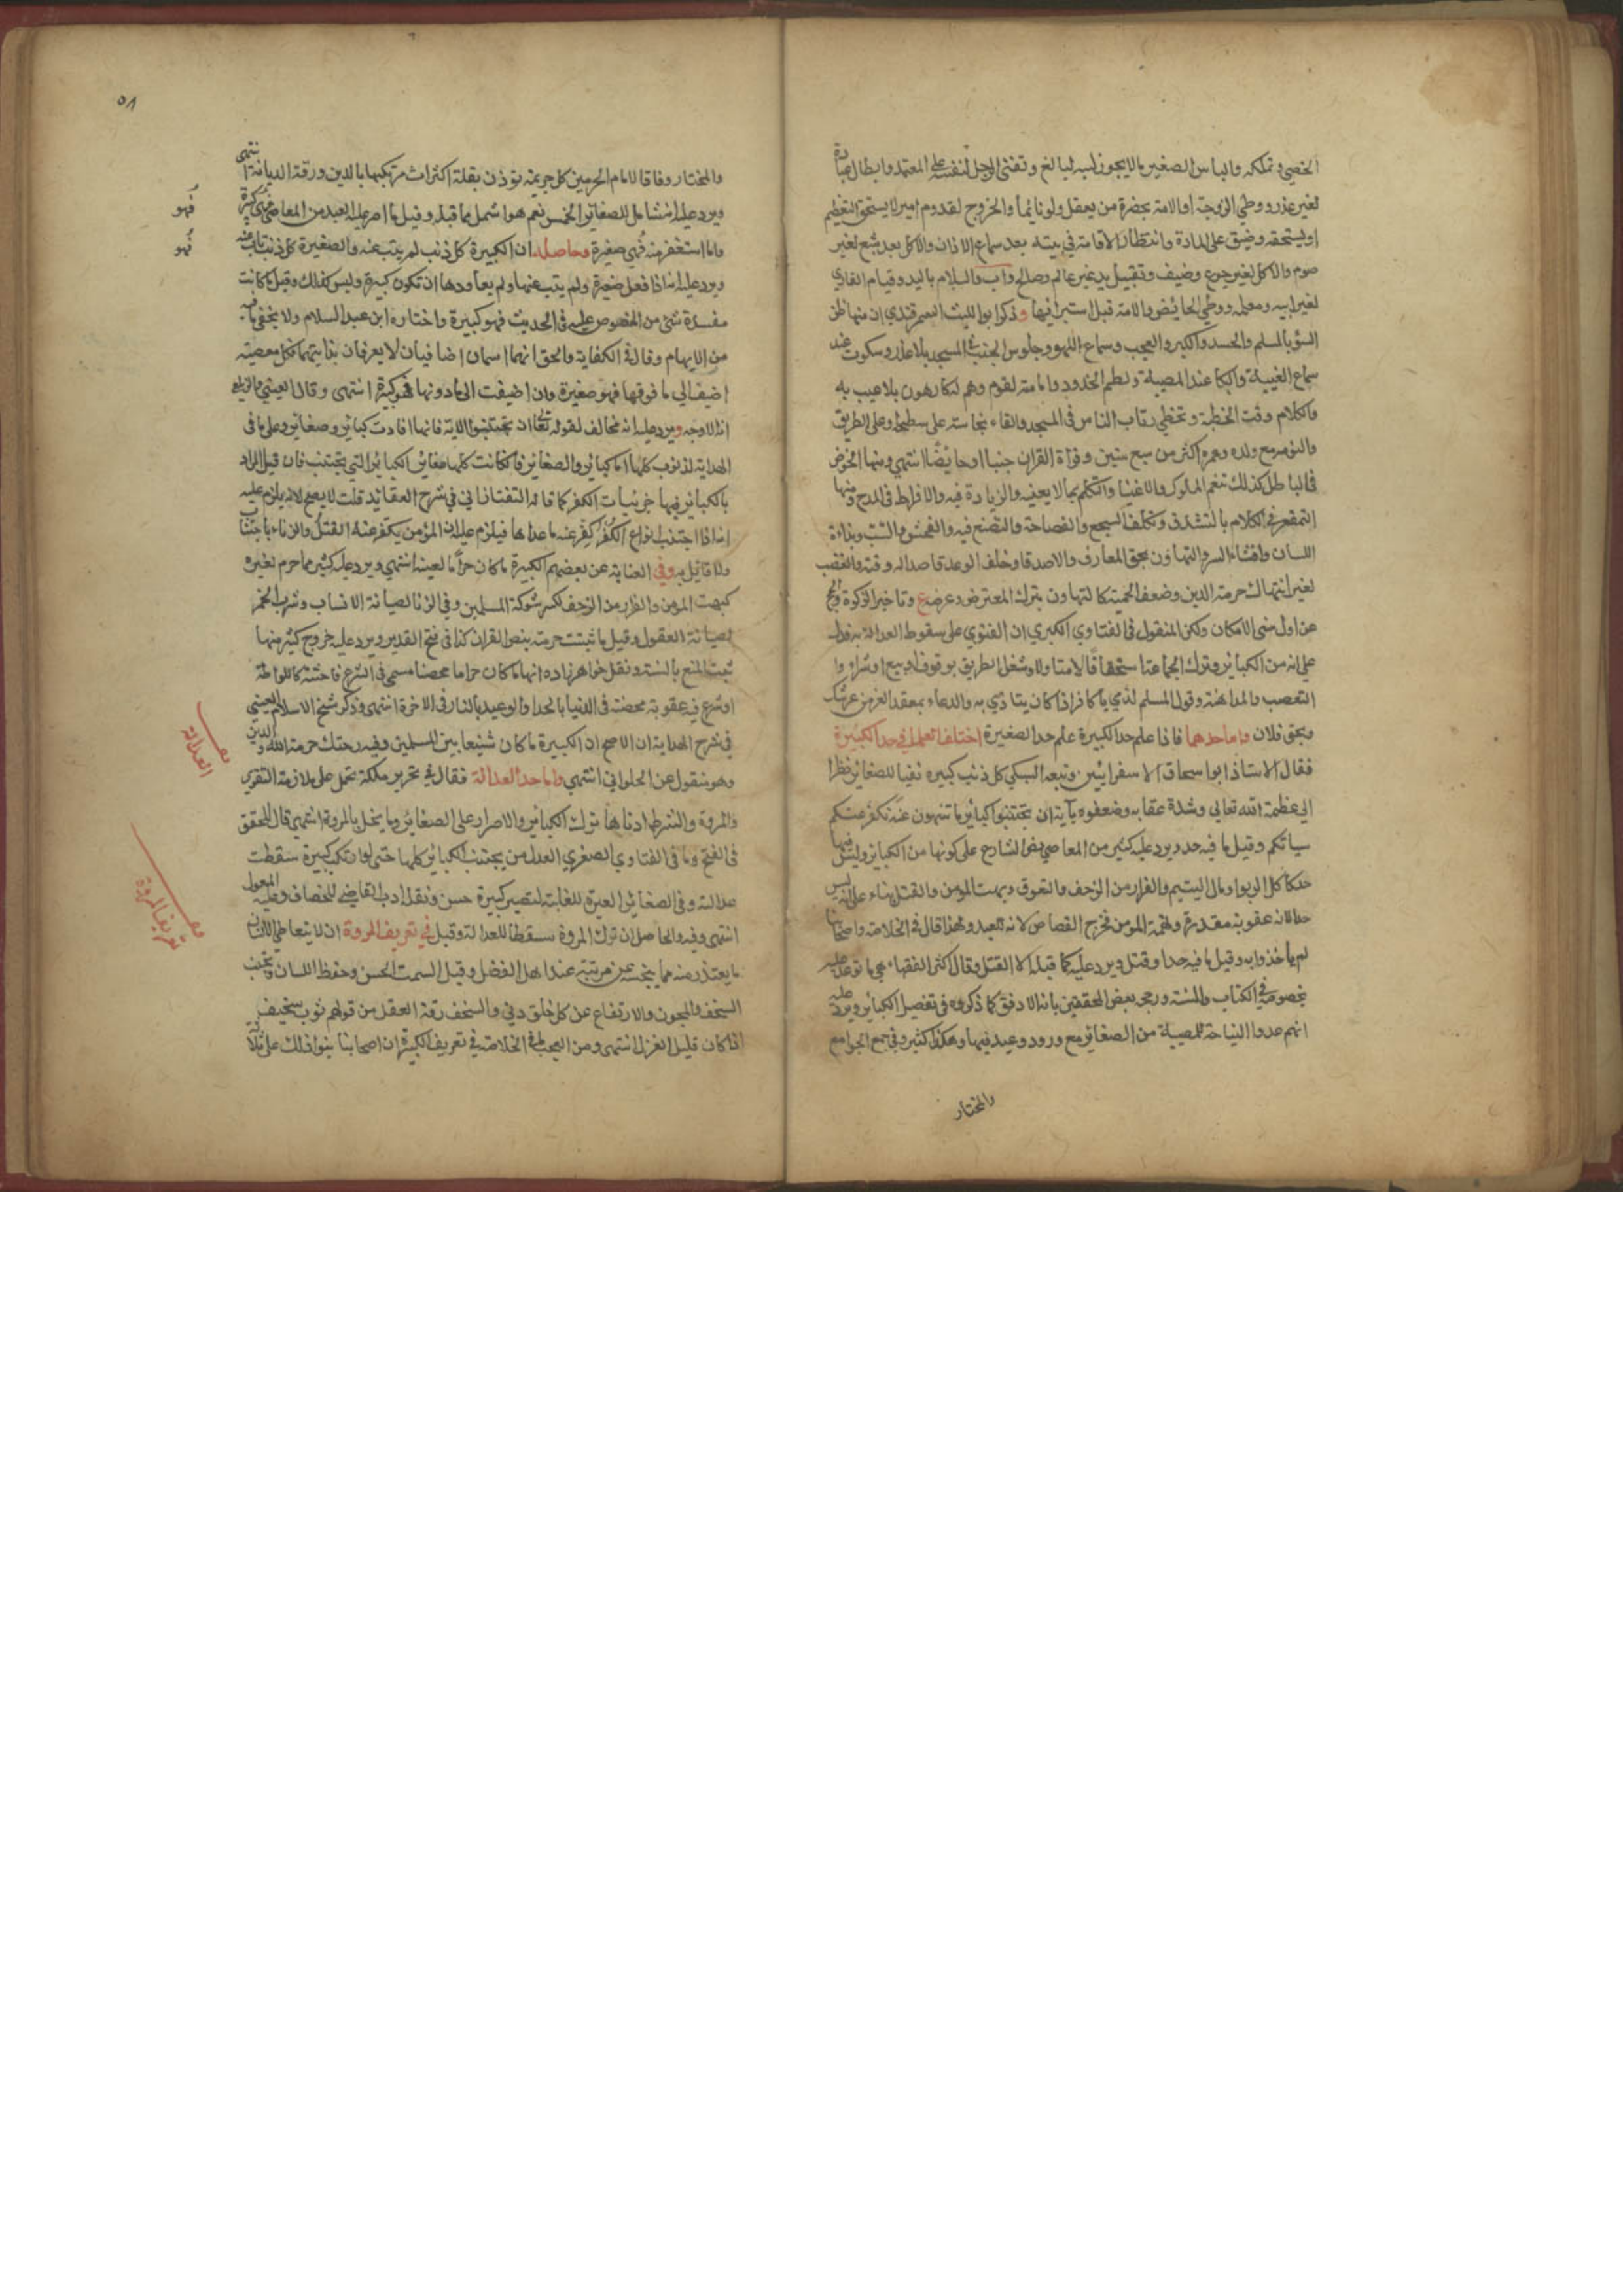 الخصي وتملكه والباس الصغير ما لا يجوز لبسه لبالغ وتغني الرجل لنفسه على المعتمد وابطال عبادة
لغير عذر ووطي الزوجة او الامة بحضرة من يعقل ولو نائما والخروج لقدوم امير لا يستحق التعظيم
او يستحقه وضيق على المادة وانتظار الاقامة في بيته بعد سماع الاذان والاكل بعد شبع لغير
صوم والاكل لغير جوع وضيف وتقبيل يد غير عالم وصالح واب والسلام باليد وقيام القاري
لغير ابيه ومعلمه ووطي الحايض والامة قبل استبرائها وذكر ابو الليث السمرقندي ان منها ظن
السؤ بالمسلم والحسد والكبر والعجب وسماع اللهو وجلوس الجنب في المسجد بلا عذر وسكوت عند
سماع الغيبة والبكا عند المصيبة ولطم الخدود وامامته لقوم وهم له كارهون بلا عيب به
والكلام وقت الخطبة وتخطي رقاب الناس في المسجد والقاء نجاسة على سطحه او على الطريق
والنوم مع ولده وعمره اكثر من سبع سنين وقراة القران جنبا او حايضا انتهى ومنها الخوض
في الباطل كذلك تنعم الملوك والاغنيا والتكلم بما لا يعنيه والزيادة فيه والافراط في المدح ومنها
التقعر في الكلام بالتشدق وتكلف السجع والفصاحة والتصنع فيه والفحش والشتب وبذاءة
اللسان وافشاء السر والتهاون بحق المعارف والاصدقا وخلف الوعد قاصدا له وقته والغضب
لغير انتهاك حرمة الدين وضعف الحمية كالتهاون بترك المعترض وعرضه ع وتاخير الزكوة والحج
عن اول سني الامكان ولكن المنقول في الفتاوي الكبري ان الفتوي على سقوط العدالة به فدل
على انه من الكبائر وترك الجماعة استخفافا لا متاولا وشغل الطريق بوقوف او بيع او شراء وا
التعصب والمداهنة وقول المسلم لذمي يا كافر اذا كان يتاذي به والدعاء بمعقد العز من عرشك
وبحق فلان واما حدهما فاذا علم حد الكبيرة علم حد الصغيرة اختلف العلماء في حد الكبيرة
فقال الاستاذ ابو اسحاق الاسفرايني وتبعه السبكي كل ذنب كبيره نفيا للصغائر نظرا
الى عظمة الله تعالى وشدة عقابه وضعفوه بآية ان تجتنبوا كبائر ما تنهون عنه نكفر عنكم
سياتكم وقيل ما فيه حد ويرد عليه كثير من المعاصي نص الشارع على كونها من الكبائر وليس فيها
حد كاكل الربوا ومال اليتيم والفرار من الزحف والعقوق وبهت المومن والقتل بناء على انه ليس
حدا لانه عقوبة مقدرة ولهمة المومن فخرج القصاص لانه للعبد ولهذا قال في الخلاصة واصحابنا
لم ياخذوا به وقيل ما فيه حد او قتل ويرد عليه كما قبله الا القتل وقال اكثر الفقهاء هي ما توعد عليه
بخصوصه في الكتاب والسنة ورجحه بعض المحققين بانه الاوفق كما ذكروه في تفصيل الكبائر ويرد عليه
انهم عدوا النياحة للمصيبة من الصغائر مع ورود وعيد فيها وهكذا كثير وفي جمع الجوامع
والمختار
٥٨
والمختار وفاقا للامام الحرمين كل جريمة توذن بقلة اكتراث مرتكبها بالدين ورقة الديانة انتهى
ويرد عليه انه شامل للصغائر الخمس نعم هو اشمل مما قبله وقيل ما اصر عليه العبد من المعاصي فهي كبيرة
فهو
واما استغفر منه فهي صغيرة وحاصله ان الكبيرة كل ذنب لم يتب عنه والصغيرة كل ذنب تاب عنه
فهو
ويرد عليه انه اذا فعل صغيرة ولم يتب عنها ولم يعاودها ان تكون كبيرة وليس كذلك وقيل ما كانت
مفسدة شي من المنصوص عليه في الحديث فهو كبيرة واختاره ابن عبد السلام ولا يخفي ما فيه
من الابهام وقال في الكفاية والحق انهما اسمان اضافيان لا يعرفان بذاتيهما فكل معصية
اضيف الى ما فوقها فهو صغيرة وان اضيفت الى ما دونها فهو كبيرة انتهى وقال العيني والزيلعي
انه الاوجه ويرد عليه انه مخالف لقوله تعالى ان تجتنبوا الاية فانها افادت كبائر وصغائر وعلى ما في
الهداية لذنوب كلها اما كبائر والصغائر فاذا كانت كلها صغائر الكبائر التي تجتنب فان قيل المراد
بالكبائر فيها جزئيات الكفر كما قاله التفتازاني في شرح العقائد قلت لا يصح لانه يلزم عليه
انه اذا اجتنب انواع الكفر كفر عنه ما عداها فيلزم عليه ان المومن يكفر عنه القتل والزناء باجتناب
ولا قائل به وفي العناية عن بعضهم الكبيرة ما كان حراما لعينه انتهى ويرد عليه كثير مما حرم لغيره
كبهت المومن والفرار من الزحف لكسر شوكة المسلمين وفي الزنا لصيانة الانساب وشرب الخمر
لصيانة العقول وقيل ما ثبتت حرمته بنص القران كذا في فتح القدير ويرد عليه خروج كثير منها
ثبت المنع بالسنة ونقل خواهر زاده انها ما كان حراما محضا مسمى في الشرع فاحشة كاللواطة
او شرع فيه عقوبة محضة في الدنيا بالحد او الوعيد بالنار في الاخرة انتهى وذكر شيخ الاسلام العيني
في شرح الهداية ان الاصح ان الكبيرة ما كان شنيعا بين المسلمين وفيه هتك حرمة الله والدين
وهو منقول عن الحلواني انتهى واما حد العدالة فقال في تحريره ملكة تحمل على ملازمة التقوي
العدالة
والمروة والشرط ادناها ترك الكبائر والاصرار على الصغائر وما يخل بالمروة انتهى قال المحقق
في الفتح وما في الفتاوي الصغري العدل من يجتنب الكبائر كلها حتى لو ارتكب كبيرة سقطت
عدالته وفي الصغائر العبرة للغلبة لتصير كبيرة حسن ونقله ادب القاضي للخصاف وعليه المعول
انتهى وفيه والحاصل ان ترك المروة مسقط للعدالة وقيل في تعريف المروة ان لا يتعاطى الانسان
تعريف المروة
ما يعتذر منه مما يبخسه عن مرتبته عند اهل الفضل وقيل السمت الحسن وحفظ اللسان وتجنب
السخف والمجون والارتفاع عن كل خلق دني والسخف رقة العقل من قولهم ثوب سخيف
اذا كان قليل الغزل انتهى ومن العجب ما في الخلاصة في تعريف الكبيرة ان اصحابنا بنوا ذلك على ثلاث